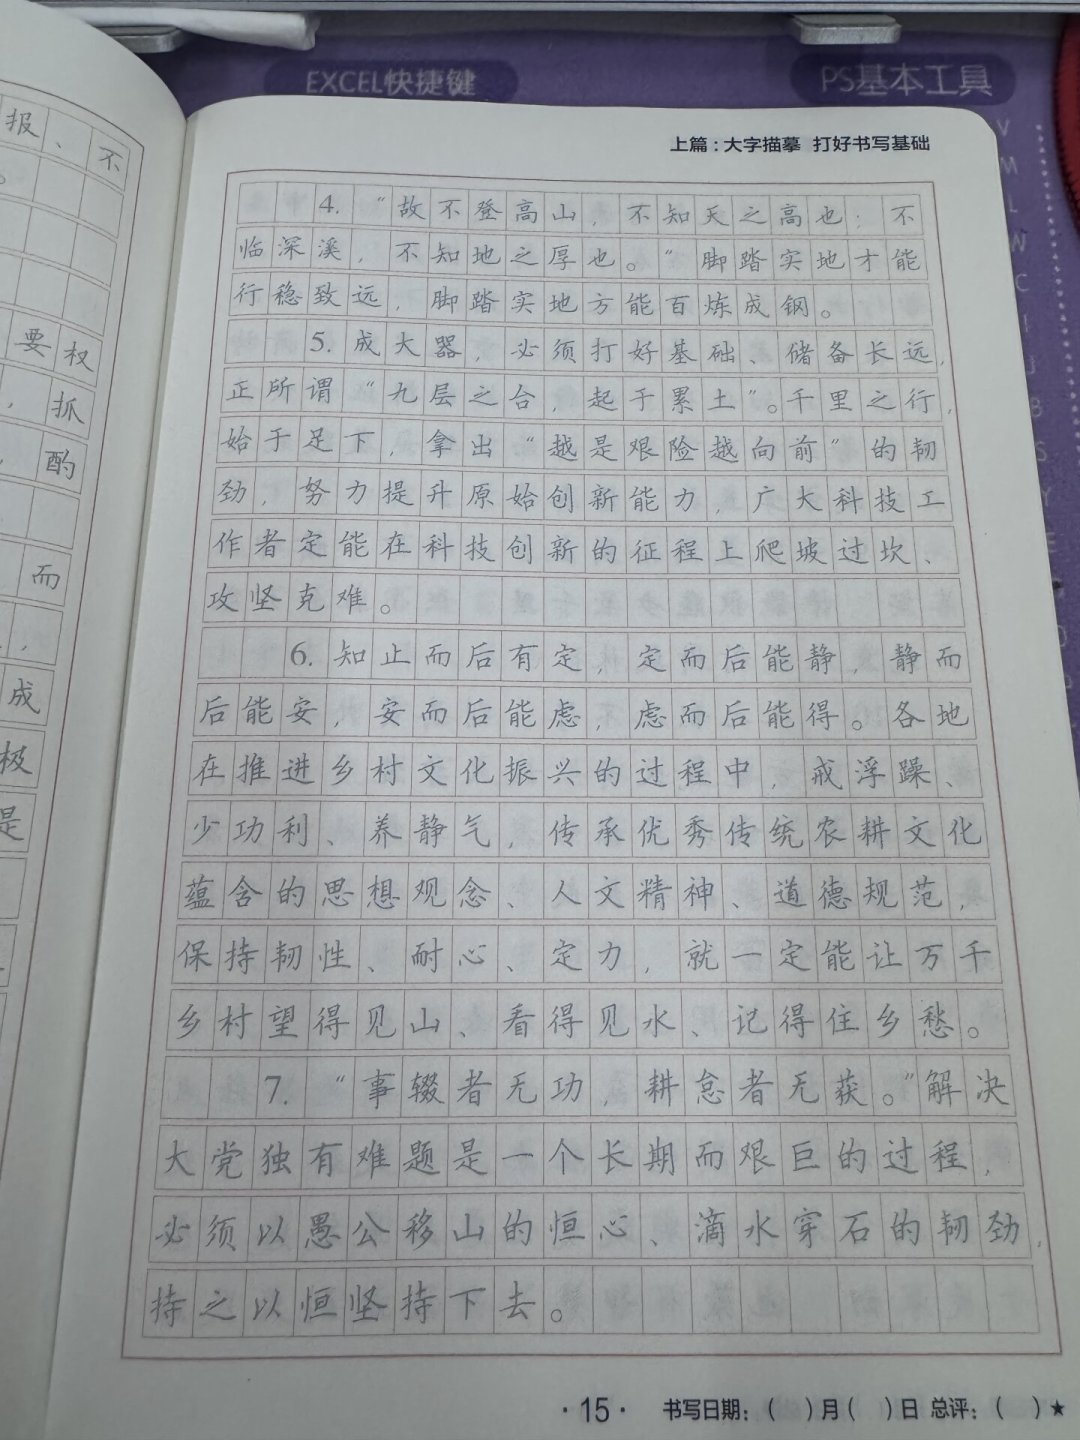 EXCEL快捷键
PS基本工具
报、不
。
要权
，抓
酌
而
成
极
是
上篇：大字描摹 打好书写基础
4.“故不登高山，不知天之高也；不
临深溪，不知地之厚也。”脚踏实地才能
行稳致远，脚踏实地方能百炼成钢。
5.成大器，必须打好基础、储备长远，
正所谓“九层之台，起于累土”。千里之行，
始于足下，拿出“越是艰险越向前”的韧
劲，努力提升原始创新能力，广大科技工
作者定能在科技创新的征程上爬坡过坎、
攻坚克难。
6.知止而后有定，定而后能静，静而
后能安，安而后能虑，虑而后能得。各地
在推进乡村文化振兴的过程中，戒浮躁、
少功利、养静气，传承优秀传统农耕文化
蕴含的思想观念、人文精神、道德规范，
保持韧性、耐心、定力，就一定能让万千
乡村望得见山、看得见水、记得住乡愁。
7.“事辍者无功，耕怠者无获。”解决
大党独有难题是一个长期而艰巨的过程，
必须以愚公移山的恒心、滴水穿石的韧劲，
持之以恒坚持下去。
·15· 书写日期：（ ）月（ ）日 总评：（ ）★